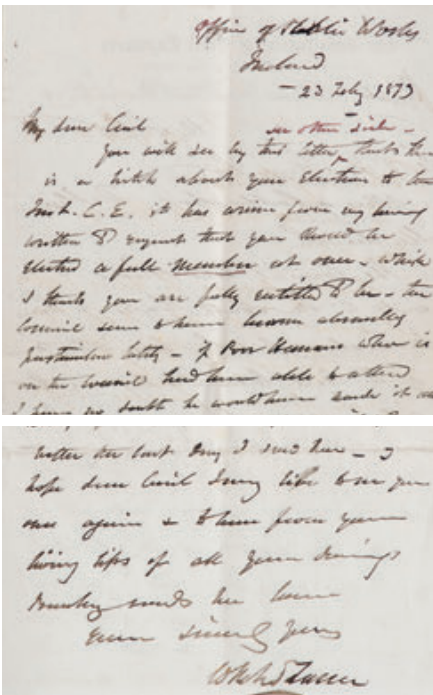 Office of Public Works
Ireland
- 23 Feby 1873
My dear Cecil
see other side -
you will see by this letter, that there
is a hitch about your Election to the
Inst. C.E. it has arisen from my having
written to request that you should be
elected a full Member at once - which
I think you are fully entitled to be - the
Council seem to have become absolutely
lately - if Poor Hemans who is
on the Council had been able to attend
I have no doubt he would have made it
better the last day I saw her - I
hope dear Cecil I may live to see you
once again & to hear from your
living lips of all your doings
sends her love
Yours sincerely